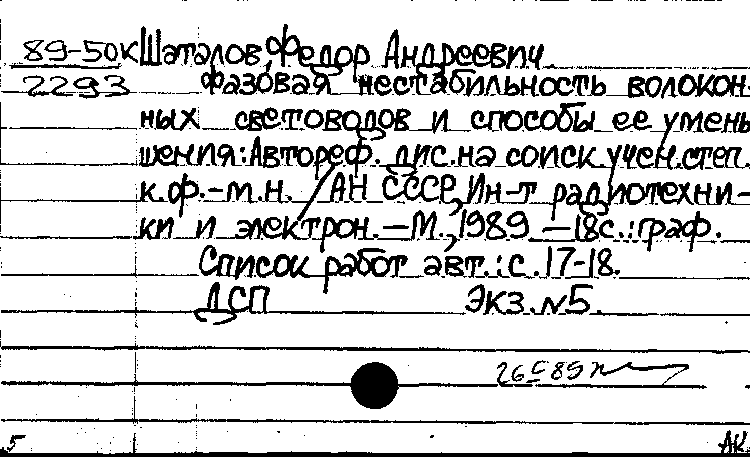 89-50к Шаталов, Федор Андреевич.
2293 Фазовая нестабильность волокон-
ных световодов и способы ее умень
шения: Автореф. дис. на соиск. учен. степ.
к.ф.-м.н. /АН СССР, Ин-т радиотехни-
ки и электрон. – М., 1989. – 18с.: граф.
Список работ авт.: с. 17-18.
ДСП Экз. N5.
5 АК